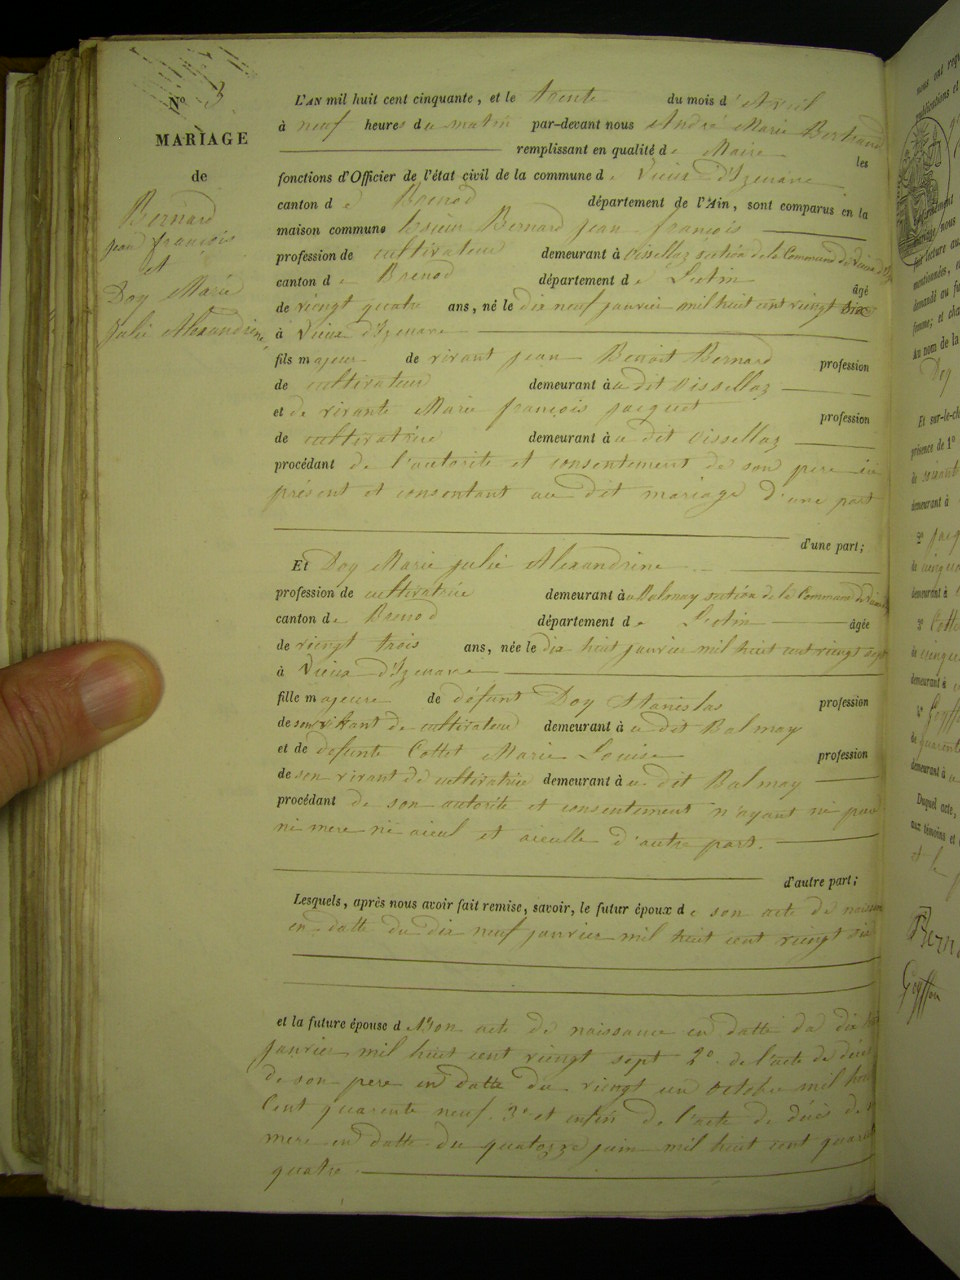 N° 3
MARIAGE
de
Bernard
jean françois
et
Doy Marie
julie Alexandrine
L'AN mil huit cent cinquante, et le trente du mois d'Avril
à neuf heures du matin par-devant nous André Marie Bertrand
remplissant en qualité de Maire les
fonctions d'Officier de l'état civil de la commune de Vieux d'Izenave
canton de Brenod département de l'Ain, sont comparus en la
maison commune Lsieur Bernard jean françois
profession de cultivateur demeurant à Vissellaz section de la Commune de Vieux d'Iz
canton de Brenod département de L'ain âgé
de viengt quatre ans, né le dix neuf janvier mil huit cent viengt six
à Vieux d'Izenave
fils majeur de vivant jean Benoit Bernard profession
de cultivateur demeurant à u dit Vissellaz
et de vivante Marie françois jacquet profession
de cultivatrice demeurant à u dit Vissellaz
procédant de l'autorite et consentement de son pere ici
présent et consentant au dit mariage d'une part
d'une part;
Et Doy Marie julie Alexandrine
profession de cultivatrice demeurant à u Balmay section de la Commune de Vieux
canton de Brenod département de L'ain âgée
de viengt trois ans, née le dix huit janvier mil huit cent viengt sept
à Vieux d'Izenave
fille majeure de défunt Doy Stanislas profession
de son vivant de cultivateur demeurant à u dit Balmay
et de defunte Cottet Marie Louise profession
de son vivant de cultivatrice demeurant à u dit Balmay
procédant de son autorite et consentement n'ayant ni pere
ni mere ni aieul et aieulle d'autre part.
d'autre part;
Lesquels, après nous avoir fait remise, savoir, le futur époux de son acte de naissan
en datte du dix neuf janvier mil huit cent viengt six
et la future épouse d 1° son acte de naissance en datte du dix huit
janvier mil huit cent viengt sept 2° de l'acte de décè
de son pere en datte du viengt un octobre mil huit
Cent quarente neuf. 3° et enfin de l'acte de décès de s
mere en datte du quatorze juin mil huit cent quarent
quatre.
nous ont requ
publications et
mariage, nous
fait lecture aux
mentionnées, e
demandé au fu
femme; et cha
Au nom de la
Doy
Et sur-le-ch
présence de 1°
de
demeurant à
2° jacq
de cinqua
demeurant à
3° Cotte
de cinqu
demeurant à
4° Goyffo
de quarente
demeurant à
Duquel acte,
aux témoins et
et le
Berna
Goyffon